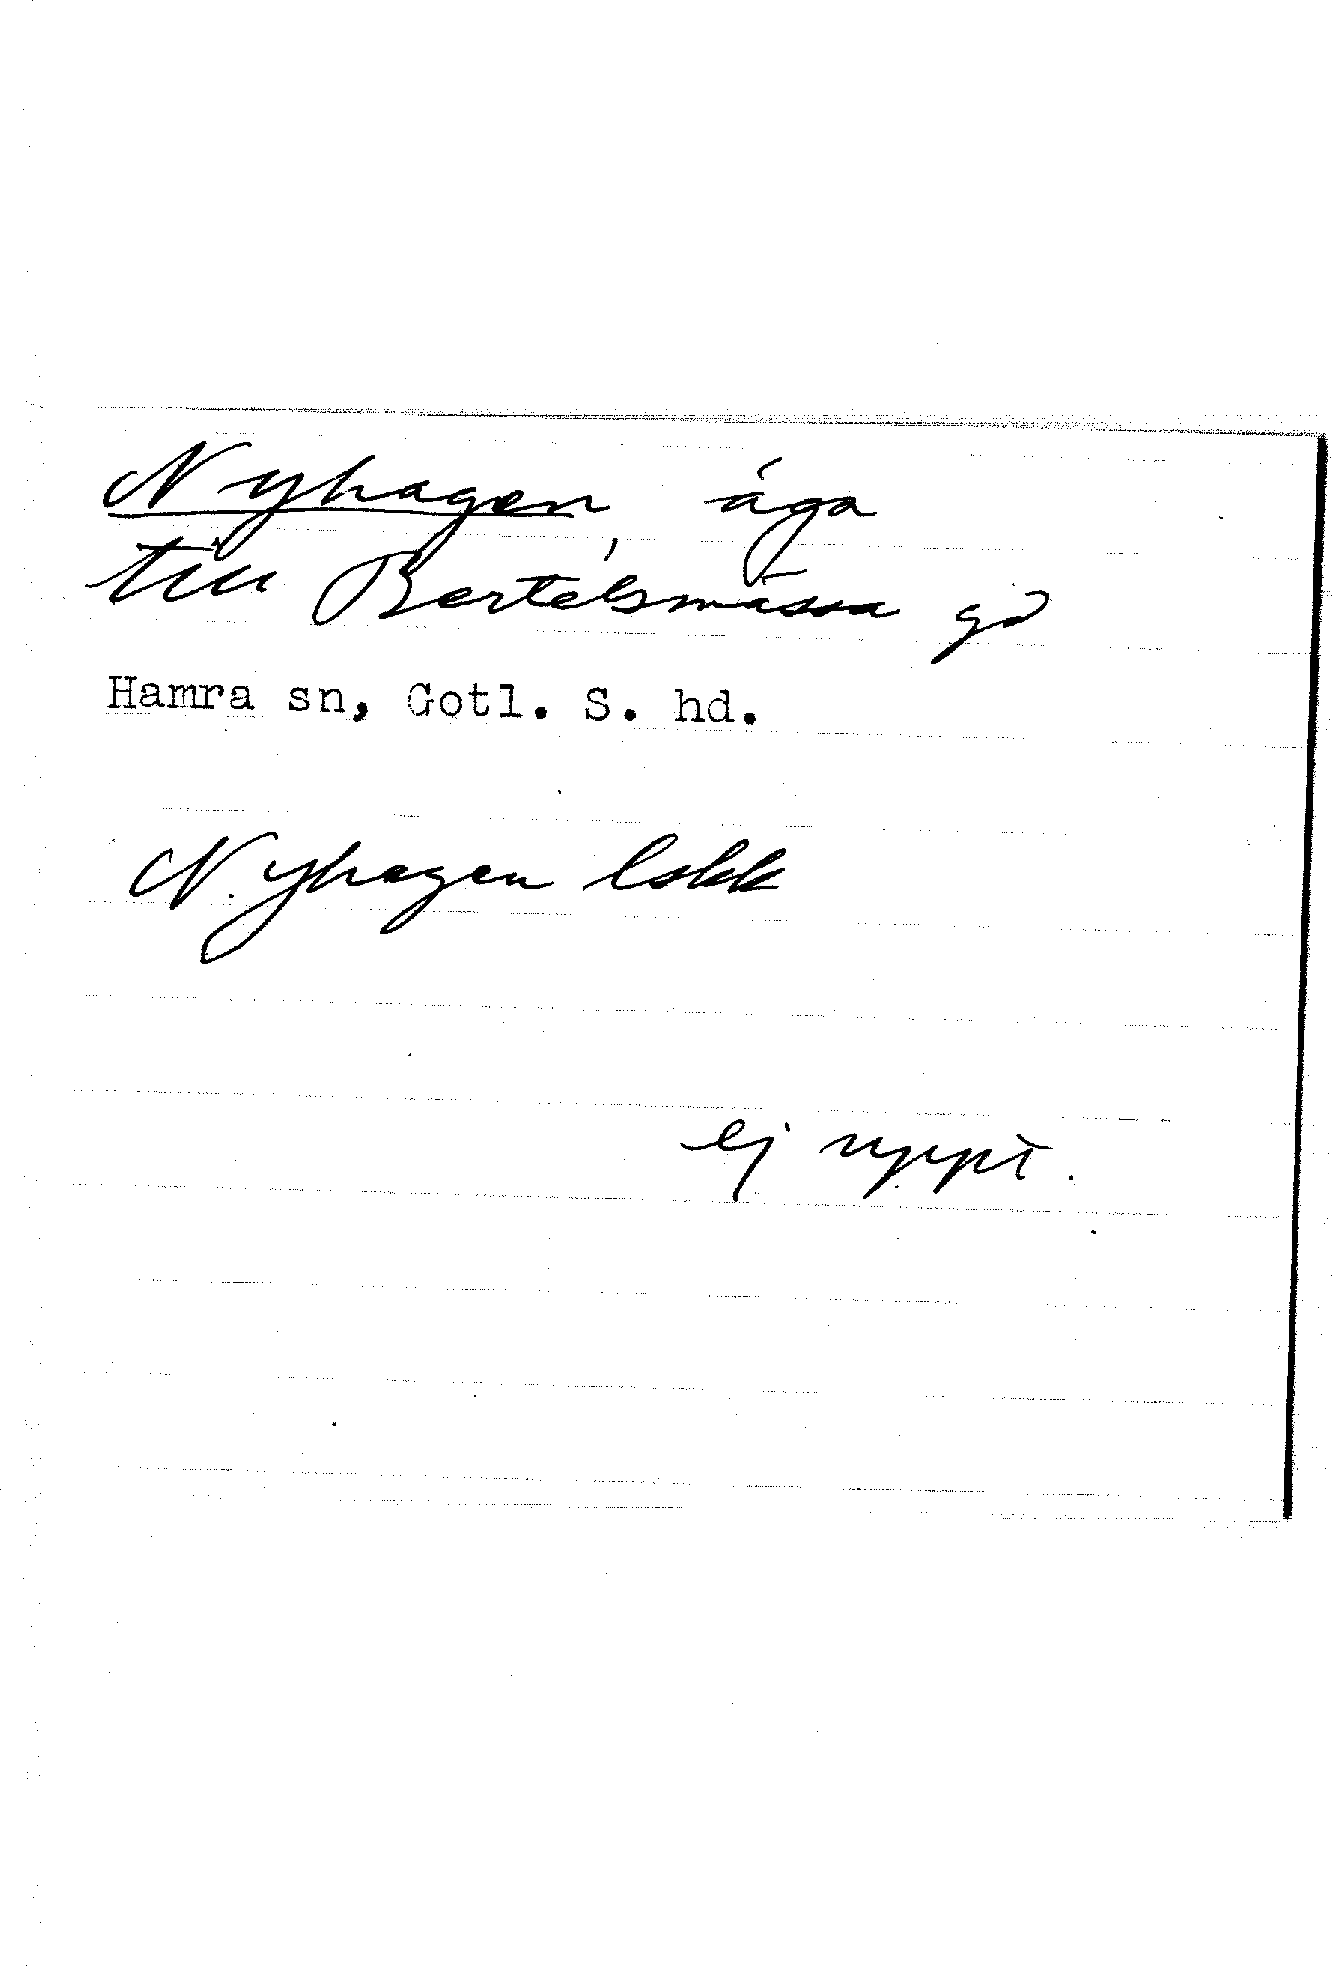 Nyhagen, äga
till Bertelsmässa gd
Hamra sn, Gotl. S. hd.
Nyhagen Lskk
ej uppt.